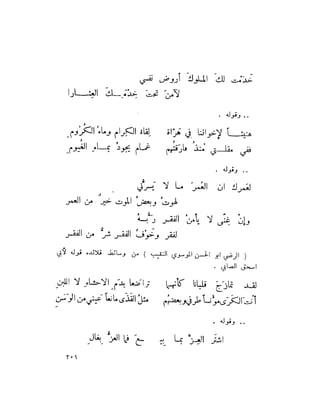 خدَمت لكَ الملوكَ أروض نفسي
لآمنَ تحتَ خدمتِـــكَ العِثـــارا
.. وقوله .
هنيئـــاً لإخواننا في هَراة لقاء الكرام وماءُ الكُرُومِ
ففي مقلـــتي مُنذُ فارقتُهم غمـام يجودُ بمــاءِ الغُيومِ
.. وقوله .
لعَمرك ان العُمرَ مــا لا يَسرُّني
لموتٌ وبعضُ الموت خيرٌ من العمر
وإنْ غِنًى لا يأمنُ الفقـر رَبُّــهُ
لفقر وخَوْفُ الفقـر شرٌّ من الفقـر
( الرضي ابو الحسن الموسوي النقيب ) من وسائط قلائده قوله لأبي
اسحق الصابي .
لقـد تمازَجَ قلبانا كأنهما تراضَعا بدَمِ الاحشاءِ لا اللبنِ
أنتَ الكَرَى مؤنساً طرفي وبعضهُم مثلُ القَذَى مانعاً عيني من الوَسَنِ
.. وقوله .
اشترِ العِــزَّ بمـا بِيـــعَ فما العزُّ بغالِ
٢٠٦